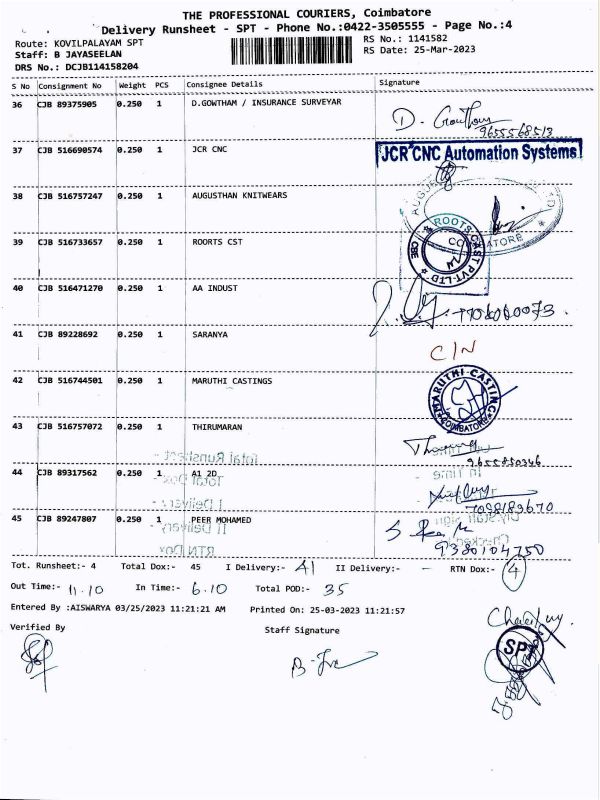 THE PROFESSIONAL COURIERS, Coimbatore
Delivery Runsheet - SPT - Phone No.:0422-3505555 - Page No.:4
Route: KOVILPALAYAM SPT
RS No.: 1141582
Staff: B JAYASEELAN
RS Date: 25-Mar-2023
DRS No.: DCJB114158204
S No Consignment No Weight PCS Consignee Details Signature
36 CJB 89375905 0.250 1 D.GOWTHAM / INSURANCE SURVEYAR
9655568513
37 CJB 516690574 0.250 1 JCR CNC JCR CNC Automation Systems
38 CJB 516757247 0.250 1 AUGUSTHAN KNITWEARS
39 CJB 516733657 0.250 1 ROORTS CST ROOTS CAST PVT LTD CBE
40 CJB 516471270 0.250 1 AA INDUST
41 CJB 89228692 0.250 1 SARANYA C/N
42 CJB 516744501 0.250 1 MARUTHI CASTINGS MARUTHI CASTING COIMBATORE
43 CJB 516757072 0.250 1 THIRUMARAN
44 CJB 89317562 0.250 1 A1 2D
7098189670
45 CJB 89247807 0.250 1 PEER MOHAMED
9380104750
Tot. Runsheet:- 4 Total Dox:- 45 I Delivery:- 41 II Delivery:- - RTN Dox:- 4
Out Time:- 11.10 In Time:- 6.10 Total POD:- 35
Entered By :AISWARYA 03/25/2023 11:21:21 AM Printed On: 25-03-2023 11:21:57
Verified By Staff Signature
SPT